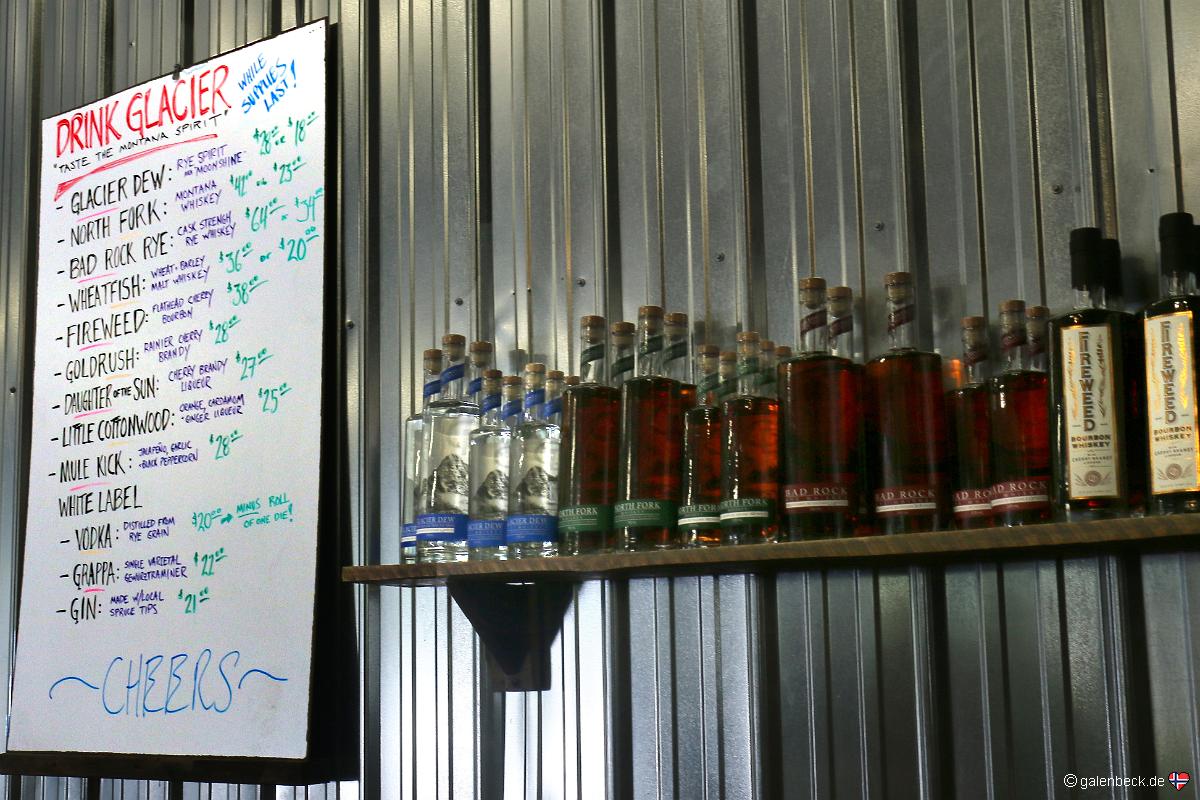 DRINK GLACIER
WHILE
SUPPLIES
LAST!
"TASTE THE MONTANA SPIRIT"
- GLACIER DEW: RYE SPIRIT
AKA "MOONSHINE" $28.00 OR $18.00
- NORTH FORK: MONTANA
WHISKEY $42.00 OR $23.00
- BAD ROCK RYE: CASK STRENGH
RYE WHISKEY $64.00 OR $34.00
- WHEATFISH: WHEAT + BARLEY
MALT WHISKEY $36.00 OR $20.00
- FIREWEED: FLATHEAD CHERRY
BOURBON $38.00
- GOLDRUSH: RAINIER CHERRY
BRANDY $28.00
- DAUGHTER OF THE SUN: CHERRY BRANDY
LIQUEUR $27.00
- LITTLE COTTONWOOD: ORANGE, CARDAMOM
+ GINGER LIQUEUR $25.00
- MULE KICK: JALAPEÑO, GARLIC
+ BLACK PEPPERCORN $28.00
WHITE LABEL
- VODKA: DISTILLED FROM
RYE GRAIN $20.00 → MINUS ROLL
OF ONE DIE!
- GRAPPA: SINGLE VARIETAL
GEWURZTRAMINER $22.00
- GIN: MADE W/LOCAL
SPRUCE TIPS $21.00
~CHEERS~
GLACIER DEW
GLACIER DEW
GLACIER DEW
NORTH FORK
NORTH FORK
NORTH FORK
NORTH FORK
BAD ROCK
BAD ROCK
BAD RO
BAD ROCK
FIREWEED
BOURBON
WHISKEY
FIREWEED
BOURBON
WHISKEY
© galenbeck.de